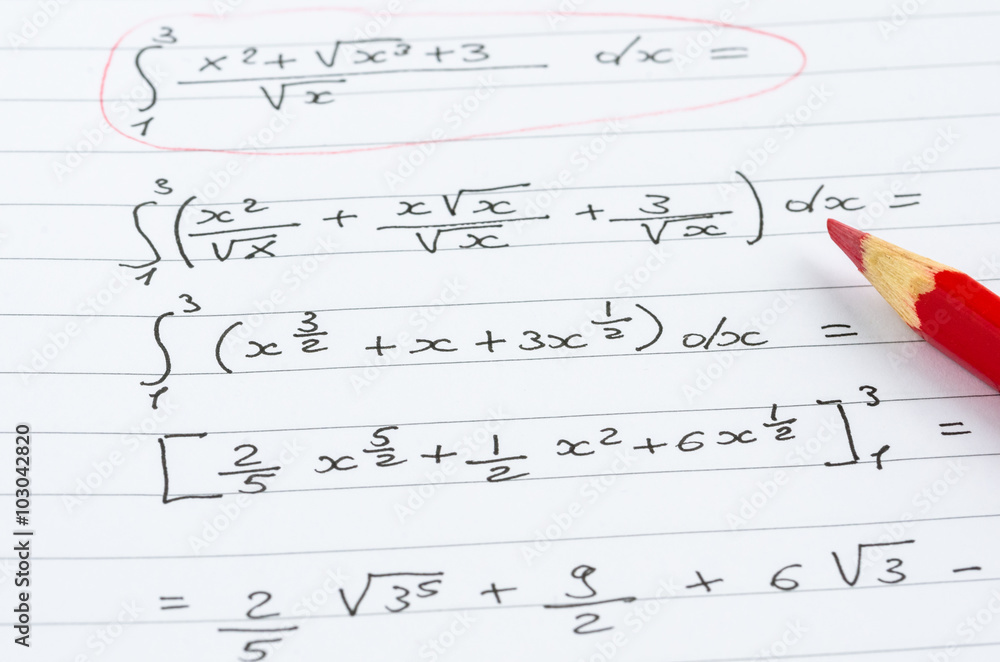 ∫₁³ (x² + √x³ + 3)/√x dx =
∫₁³ (x²/√x + x√x/√x + 3/√x) dx =
∫₁³ (x^(3/2) + x + 3x^(1/2)) dx =
[2/5 x^(5/2) + 1/2 x² + 6x^(1/2)]₁³ =
= 2/5 √3⁵ + 9/2 + 6√3 -
Adobe Stock | #103042820